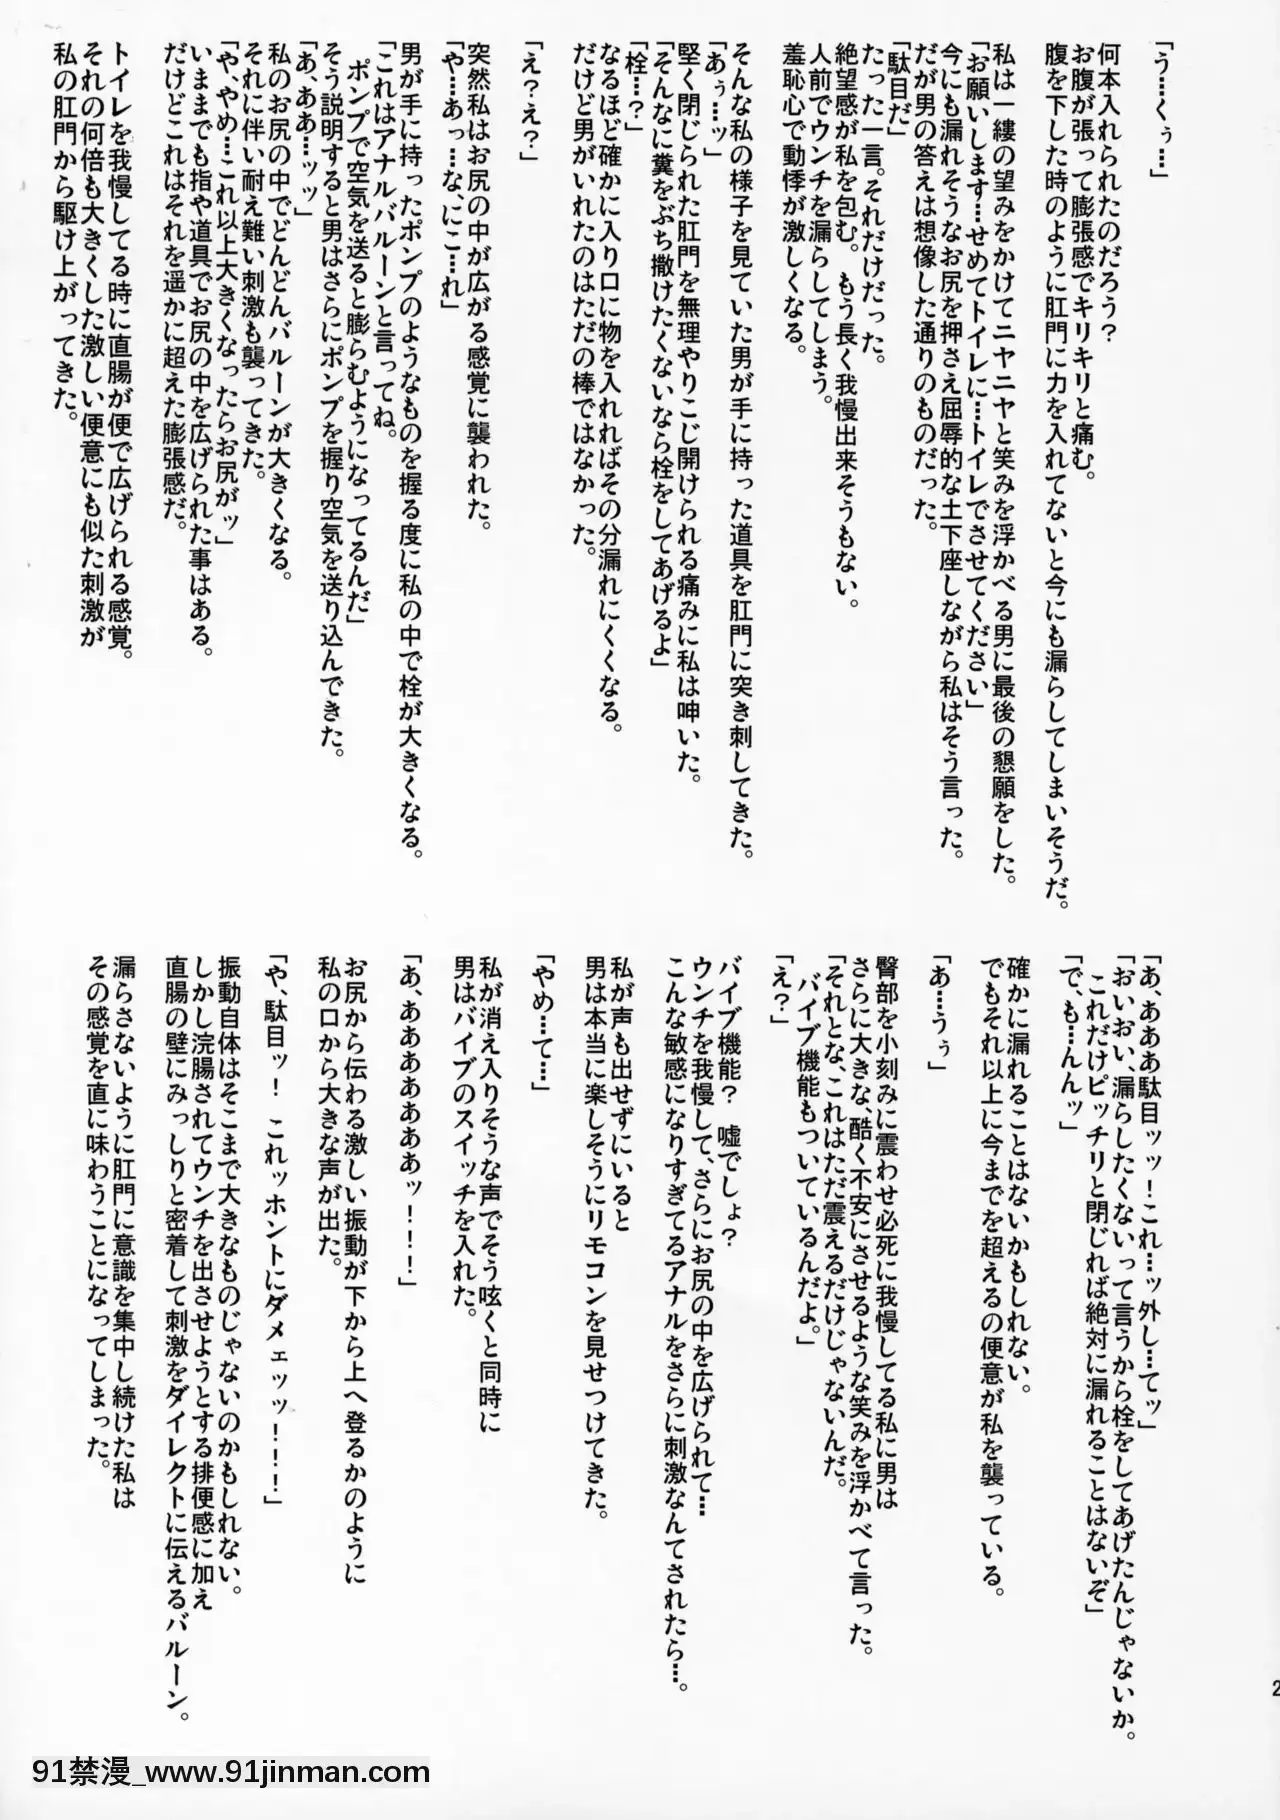 「う…くぅ…」
何本入れられたのだろう？
お腹が張って膨張感でキリキリと痛む。
腹を下した時のように肛門に力を入れてないと今にも漏らしてしまいそうだ。
私は一縷の望みをかけてニヤニヤと笑みを浮かべる男に最後の懇願をした。
「お願いします…せめてトイレに…トイレでさせてください」
今にも漏れそうなお尻を押さえ屈辱的な土下座しながら私はそう言った。
だが男の答えは想像した通りのものだった。
「駄目だ」
たった一言。それだけだった。
絶望感が私を包む。もう長く我慢出来そうもない。
人前でウンチを漏らしてしまう。
羞恥心で動悸が激しくなる。
そんな私の様子を見ていた男が手に持った道具を肛門に突き刺してきた。
「あぅ…ッ」
堅く閉じられた肛門を無理やりこじ開けられる痛みに私は呻いた。
「そんなに糞をぶち撒けたくないなら栓をしてあげるよ」
「栓…？」
なるほど確かに入り口に物を入れればその分漏れにくくなる。
だけど男がいれたのはただの棒ではなかった。
「え？え？」
突然私はお尻の中が広がる感覚に襲われた。
「や…あっ…な、にこ…れ」
男が手に持ったポンプのようなものを握る度に私の中で栓が大きくなる。
「これはアナルバルーンと言ってね。
ポンプで空気を送ると膨らむようになってるんだ」
そう説明すると男はさらにポンプを握り空気を送り込んできた。
「あ、ああ…ッッ」
私のお尻の中でどんどんバルーンが大きくなる。
それに伴い耐え難い刺激も襲ってきた。
「や、やめ…これ以上大きくなったらお尻がッ」
いままでも指や道具でお尻の中を広げられた事はある。
だけどこれはそれを遥かに超えた膨張感だ。
トイレを我慢してる時に直腸が便で広げられる感覚。
それの何倍も大きくした激しい便意にも似た刺激が
私の肛門から駆け上がってきた。
「あ、あああ駄目ッッ！これ…ッ外し…てッ」
「おいおい、漏らしたくないって言うから栓をしてあげたんじゃないか。
これだけピッチリと閉じれば絶対に漏れることはないぞ」
「で、も…んんッ」
確かに漏れることはないかもしれない。
でもそれ以上に今までを超えるの便意が私を襲っている。
「あ…うぅ」
臀部を小刻みに震わせ必死に我慢してる私に男は
さらに大きな、酷く不安にさせるような笑みを浮かべて言った。
「それとな、これはただ震えるだけじゃないんだ。
バイブ機能もついているんだよ。」
「え？」
バイブ機能？　嘘でしょ？
ウンチを我慢して、さらにお尻の中を広げられて…
こんな敏感になりすぎてるアナルをさらに刺激なんてされたら…。
私が声も出せずにいると
男は本当に楽しそうにリモコンを見せつけてきた。
「やめ…て…」
私が消え入りそうな声でそう呟くと同時に
男はバイブのスイッチを入れた。
「あ、ああああああぁッ！！！」
お尻から伝わる激しい振動が下から上へ登るかのように
私の口から大きな声が出た。
「や、駄目ッ！　これッホントにダメェッッ！！！」
振動自体はそこまで大きなものじゃないのかもしれない。
しかし浣腸されてウンチを出させようとする排便感に加え
直腸の壁にみっしりと密着して刺激をダイレクトに伝えるバルーン。
漏らさないように肛門に意識を集中し続けた私は
その感覚を直に味わうことになってしまった。
2
91禁漫_www.91jinman.com